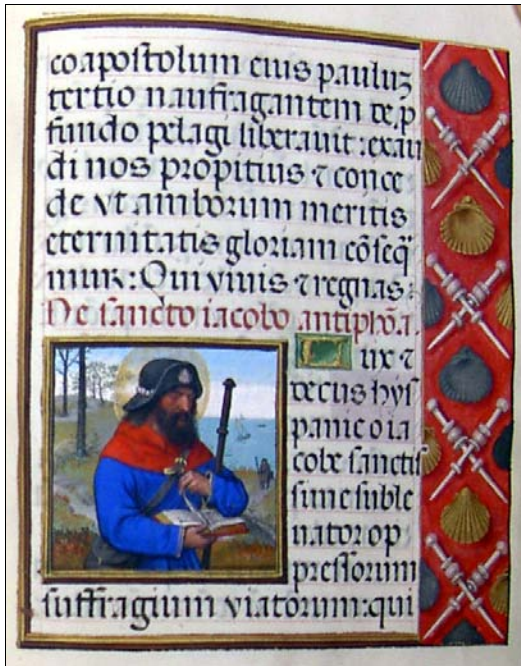 coapostolum eius pauluz
tertio naufragantem de, p
fundo pelagi liberauit: exau
di nos propitius ⁊ conce
de vt amborum meritis
eternitatis gloriam cōseq̄
mur: Qui viuis ⁊ regnas:
De sancto iacobo antiphōa.
Lux ⁊
decus hys
panie o ia
cobe sanctis
sime suble
uator op
pressorum
suffragium viatorum: qui